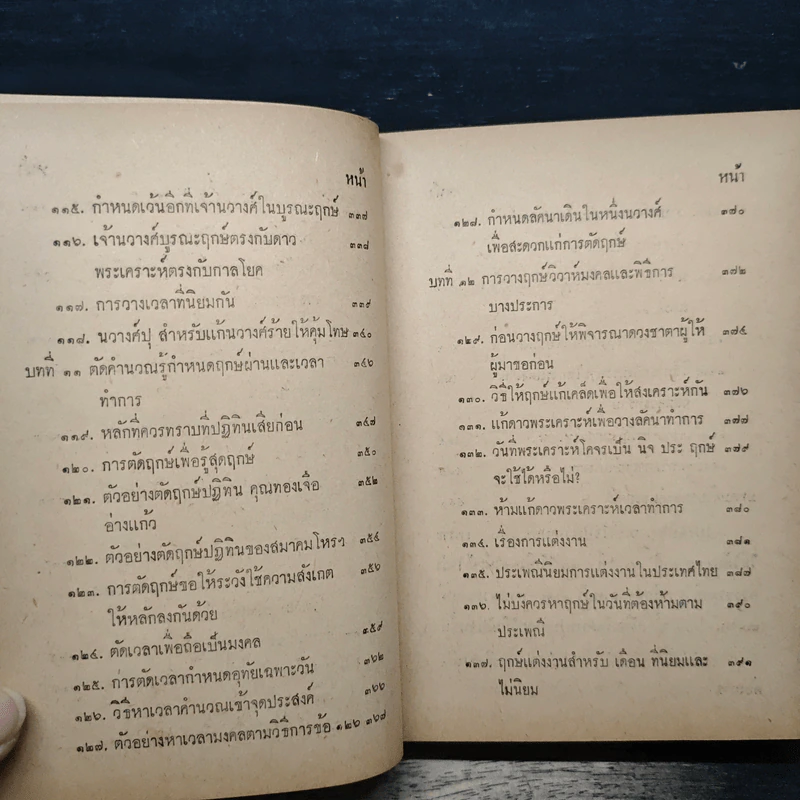 หน้า
๑๑๕. กำหนดเว้นอีกที่เจ้านวางศ์ในบูรณะฤกษ์ ๓๓๗
๑๑๖. เจ้านวางศ์บูรณะฤกษ์ตรงกับดาว ๓๓๘
พระเคราะห์ตรงกับกาลโยค
๑๑๗. การวางเวลาที่นิยมกัน ๓๓๙
๑๑๘. นวางศ์ปุ สำหรับแก้นวางศ์ร้ายให้คุ้มโทษ ๓๔๐
บทที่ ๑๑ ตัดคำนวณรู้กำหนดฤกษ์ผ่านและเวลา ๓๔๖
ทำการ
๑๑๙. หลักที่ควรทราบที่ปฏิทินเสียก่อน ๓๔๗
๑๒๐. การตัดฤกษ์เพื่อรู้สุดฤกษ์ ๓๕๐
๑๒๑. ตัวอย่างตัดฤกษ์ปฏิทิน คุณทองเจือ ๓๕๒
อ่างแก้ว
๑๒๒. ตัวอย่างตัดฤกษ์ปฏิทินของสมาคมโหรฯ ๓๕๔
๑๒๓. การตัดฤกษ์ขอให้ระวังใช้ความสังเกต ๓๕๖
ให้หลักลงกันด้วย
๑๒๔. ตัดเวลาเพื่อถือเป็นมงคล ๓๕๙
๑๒๕. การตัดเวลากำหนดอุทัยเฉพาะวัน ๓๖๒
๑๒๖. วิธีหาเวลาคำนวณเข้าจุดประสงค์ ๓๖๖
๑๒๗. ตัวอย่างหาเวลามงคลตามวิธีการข้อ ๑๒๖ ๓๖๗
หน้า
๑๒๘. กำหนดลัคนาเดินในหนึ่งนวางศ์ ๓๗๐
เพื่อสะดวกแก่การตัดฤกษ์
บทที่ ๑๒ การวางฤกษ์วิวาห์มงคลและพิธีการ ๓๗๒
บางประการ
๑๒๙. ก่อนวางฤกษ์ให้พิจารณาดวงชาตาผู้ให้ ๓๗๔
ผู้มาขอก่อน
๑๓๐. วิธีให้ฤกษ์แก้เคล็ดเพื่อให้ส่งเคราะห์กัน ๓๗๖
๑๓๑. แก้ดาวพระเคราะห์เพื่อวางลัคนาทำการ ๓๗๗
๑๓๒. วันที่พระเคราะห์โคจรเป็น นิจ ประ ฤกษ์ ๓๗๙
จะใช้ได้หรือไม่?
๑๓๓. ห้ามแก้ดาวพระเคราะห์เวลาทำการ ๓๘๐
๑๓๔. เรื่องการแต่งงาน ๓๘๑
๑๓๕. ประเพณีนิยมการแต่งงานในประเทศไทย ๓๘๗
๑๓๖. ไม่บังควรหาฤกษ์ในวันที่ต้องห้ามตาม ๓๙๐
ประเพณี
๑๓๗. ฤกษ์แต่งงานสำหรับ เดือน ที่นิยมและ ๓๙๑
ไม่นิยม